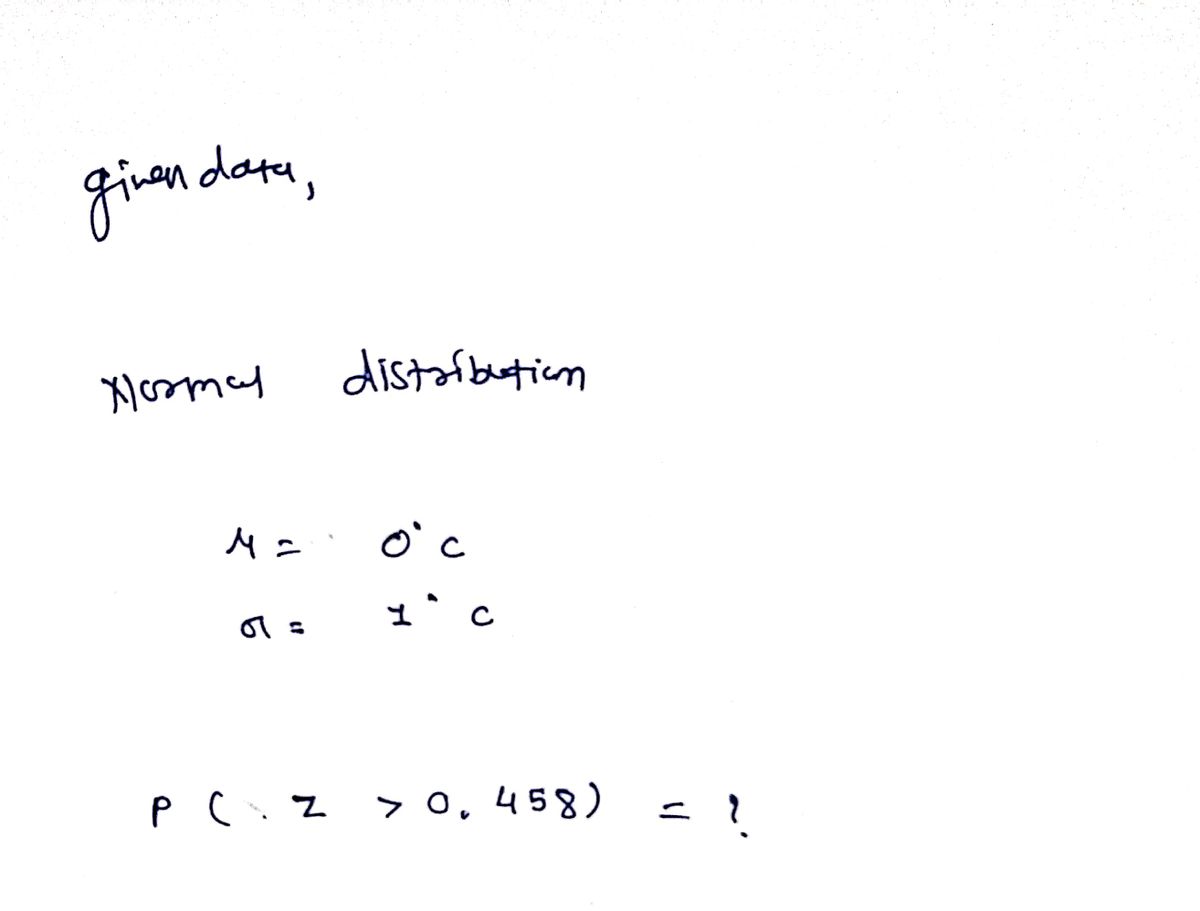 given data,
Normal distribution
μ = 0°c
σ = 1°c
P(Z > 0.458) = ?